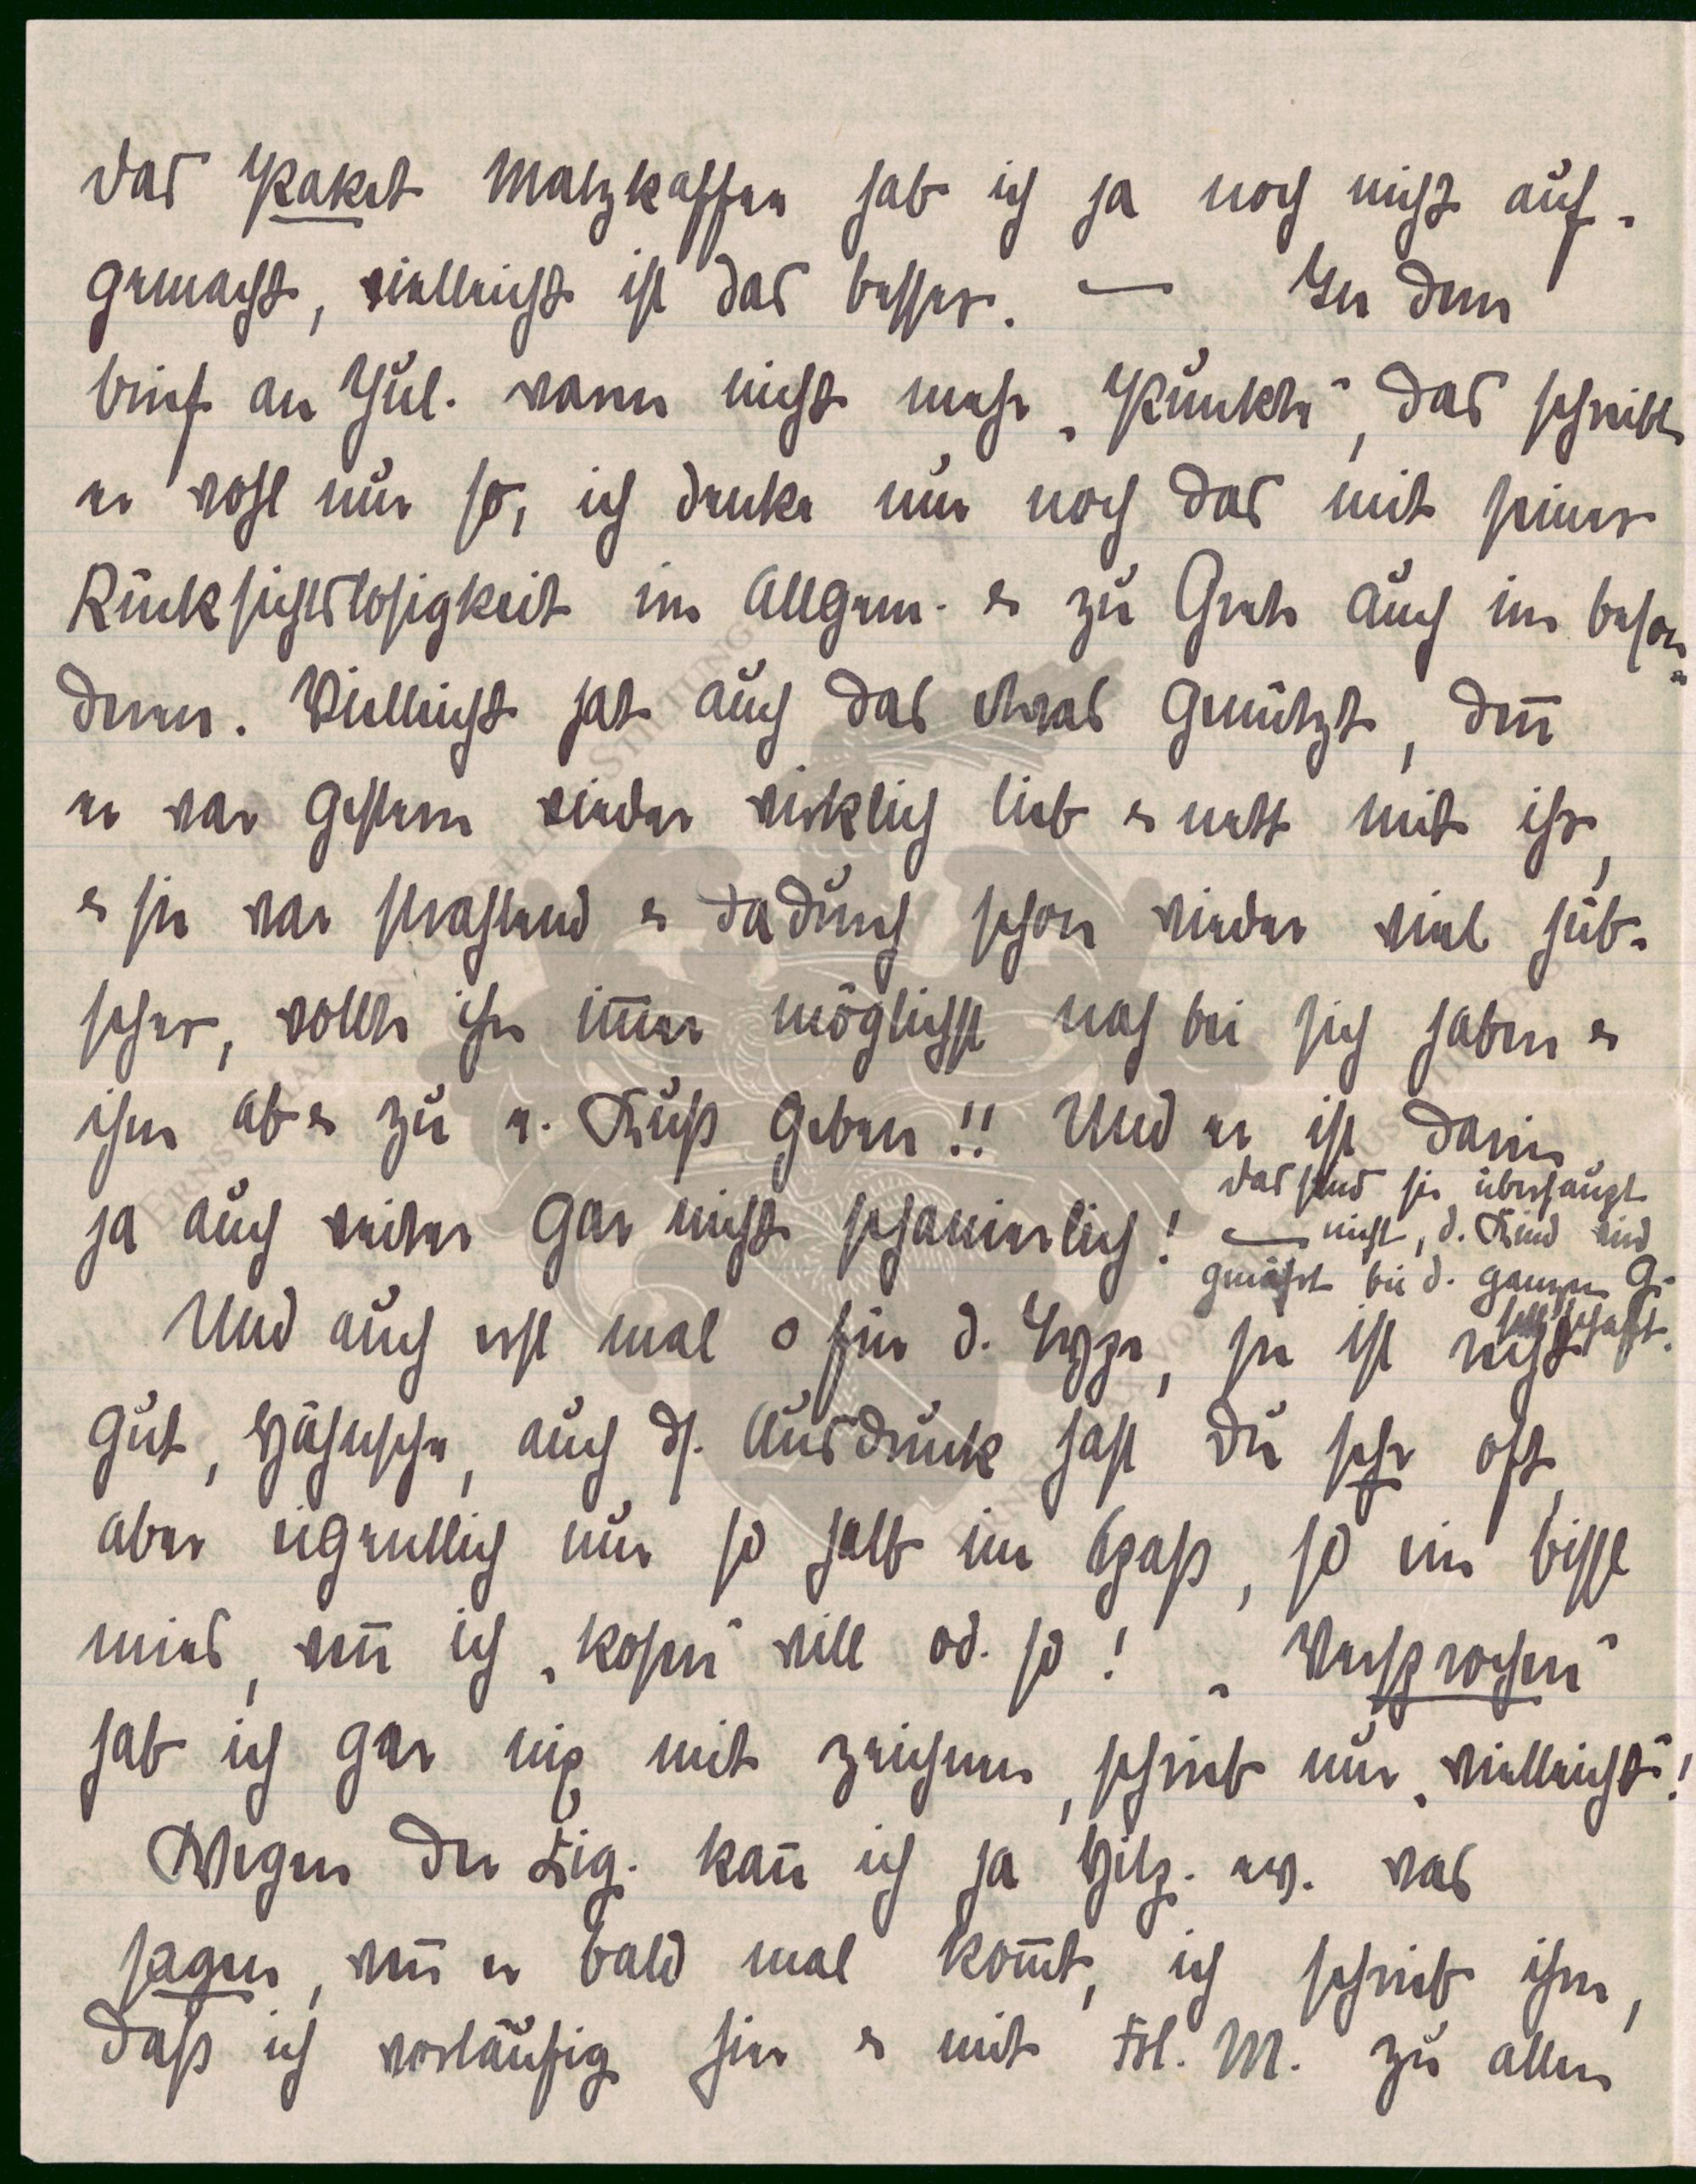 das Paket Malzkaffee hab ich ja noch nicht auf-
gemacht, vielleicht ist das besser. — In dem
Brief an Jul. waren nicht mehr „Punkte", das schreibt
er wohl nur so, ich denke nur noch das mit seiner
Rücksichtslosigkeit im Allgem. & zu Grete auch im beson-
deren. Vielleicht hat auch das etwas genützt, deñ
er war gestern wieder wirklich lieb & nett mit ihr,
& sie war strahlend & dadurch schon wieder viel hüb-
scher, wollte ihn im̄er möglichst nah bei sich haben &
ihm ab & zu e. Kuß geben!! Und er ist darin
ja auch weiter gar nicht schanierlich!
— das sind sie überhaupt
nicht, d. Kind wird
genährt bei d. ganzen Ge-
sellschaft.
Und auch erst mal o für d. Hyze, sie ist recht
gut, Hähnsche, auch ds. Ausdruck hast Du sehr oft,
aber eigentlich nur so halb im Spaß, so ein bissl
mies, weñ ich „kosen" will od. so! „Versprochen"
hab ich gar nix mit zeichnen, schrieb nur „vielleicht"!
Wegen der Zig. kañ ich ja Hilg. ev. was
sagen, weñ er bald mal kom̄t, ich schrieb ihm,
daß ich vorläufig hier & mit Frl. M. zu allen